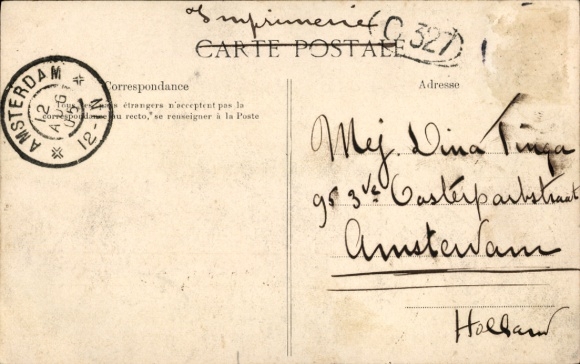 Imprimerie
C. 327
CARTE POSTALE
Correspondance
Tous les pays étrangers n'acceptent pas la
correspondance au recto, se renseigner à la Poste
AMSTERDAM
12 AUG 05
12-1N
Adresse
Mej. Dina Tinga
95 3ve Oosterparkstraat
Amsterdam
Holland